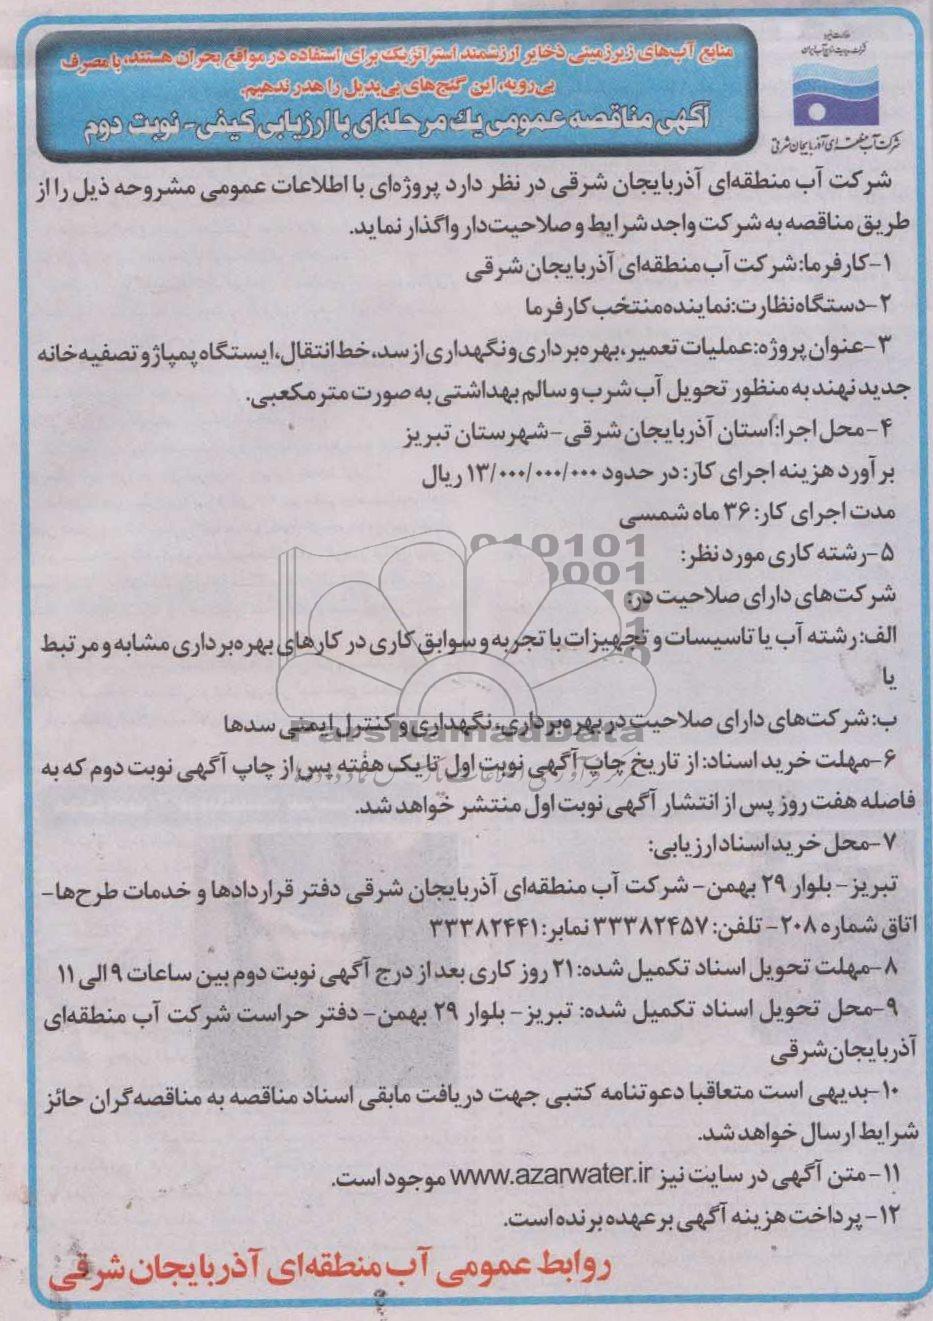 منابع آب‌های زیرزمینی ذخایر ارزشمند استراتژیک برای استفاده در مواقع بحران هستند، با مصرف
بی‌رویه، این گنج‌های بی‌بدیل را هدر ندهیم.
آگهی مناقصه عمومی یك مرحله‌ای با ارزیابی کیفی- نوبت دوم
شرکت آب منطقه‌ای آذربایجان شرقی
شرکت آب منطقه‌ای آذربایجان شرقی در نظر دارد پروژه‌ای با اطلاعات عمومی مشروحه ذیل را از
طریق مناقصه به شرکت واجد شرایط و صلاحیت‌دار واگذار نماید.
۱-کارفرما: شرکت آب منطقه‌ای آذربایجان شرقی
۲-دستگاه نظارت: نماینده منتخب کارفرما
۳-عنوان پروژه: عملیات تعمیر، بهره‌برداری و نگهداری از سد، خط انتقال، ایستگاه پمپاژ و تصفیه‌خانه
جدید نهند به منظور تحویل آب شرب و سالم بهداشتی به صورت مترمکعبی.
۴-محل اجرا: استان آذربایجان شرقی-شهرستان تبریز
برآورد هزینه اجرای کار: در حدود ۱۳/۰۰۰/۰۰۰/۰۰۰ ریال
مدت اجرای کار: ۳۶ ماه شمسی
۵-رشته کاری مورد نظر:
شرکت‌های دارای صلاحیت در:
الف: رشته آب یا تاسیسات و تجهیزات با تجربه و سوابق کاری در کارهای بهره‌برداری مشابه و مرتبط
یا
ب: شرکت‌های دارای صلاحیت در بهره‌برداری، نگهداری و کنترل ایمنی سدها
ParsNamadData
۶-مهلت خرید اسناد: از تاریخ چاپ آگهی نوبت اول تا یک هفته پس از چاپ آگهی نوبت دوم که به
فاصله هفت روز پس از انتشار آگهی نوبت اول منتشر خواهد شد.
۷-محل خرید اسناد ارزیابی:
تبریز- بلوار ۲۹ بهمن- شرکت آب منطقه‌ای آذربایجان شرقی دفتر قراردادها و خدمات طرح‌ها-
اتاق شماره ۲۰۸- تلفن: ۳۳۳۸۲۴۵۷ نمابر: ۳۳۳۸۲۴۴۱
۸-مهلت تحویل اسناد تکمیل شده: ۲۱ روز کاری بعد از درج آگهی نوبت دوم بین ساعات ۹ الی ۱۱
۹-محل تحویل اسناد تکمیل شده: تبریز- بلوار ۲۹ بهمن- دفتر حراست شرکت آب منطقه‌ای
آذربایجان‌شرقی
۱۰-بدیهی است متعاقبا دعوتنامه کتبی جهت دریافت مابقی اسناد مناقصه به مناقصه‌گران حائز
شرایط ارسال خواهد شد.
۱۱-متن آگهی در سایت نیز www.azarwater.ir موجود است.
۱۲-پرداخت هزینه آگهی بر عهده برنده است.
روابط عمومی آب منطقه‌ای آذربایجان شرقی